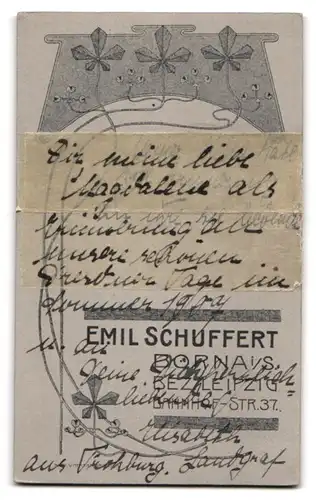 Dir meine liebe
Magdalene als
Erinnerung an
unsere schönen
Dresdner Tage im
Sommer 1907
EMIL SCHUFFERT
u. an
BORNA I/S.
Deine
BEZ. LEIPZIG
BAHNHOF-STR. 37.
Elisabeth
aus Frohburg. Landgraf